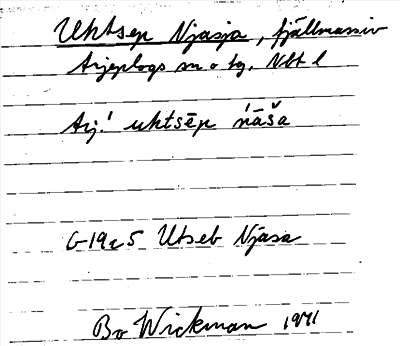 Uktsep Njasja, fjällmassiv
Arjeplogs sn o tg. Nbt l
Arj.! uktsēp ńāša
G-19 5 Utseb Njasa
Bo Wickman 1971